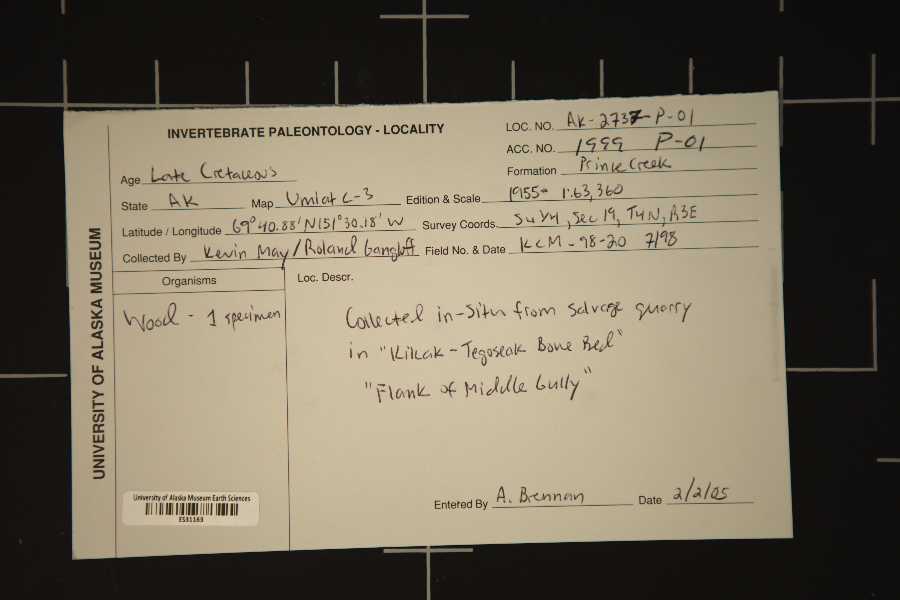 INVERTEBRATE PALEONTOLOGY - LOCALITY
LOC. NO. AK-2737-P-01
ACC. NO. 1999 P-01
Age Late Cretaceous
Formation Prince Creek
State AK Map Umiat C-3 Edition & Scale 1955 - 1:63,360
Latitude / Longitude 69°40.88'N 151°30.18'W Survey Coords. SW 1/4, Sec 19, T4N, R3E
Collected By Kevin May/Roland Gangloff Field No. & Date KCM-98-20 7/98
Organisms
Loc. Descr.
Wood - 1 specimen
Collected in-situ from salvage quarry
in "Kikak-Tegoseak Bone Bed"
"Flank of Middle Gully"
UNIVERSITY OF ALASKA MUSEUM
University of Alaska Museum Earth Sciences
ES31163
Entered By A. Brennan Date 2/2/05